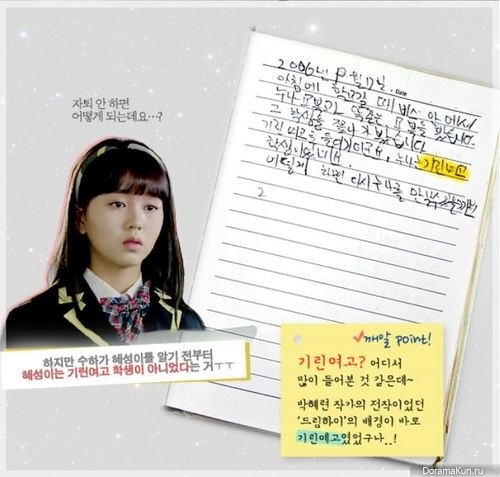 자퇴 안 하면
어떻게 되는데요...?
2006년 8월 17일.
아침에 학교갈 때 버스 안에서
누나 교복과 똑같은 교복을 봤습니다.
그 학생을 쫓아가 봤습니다
기린 여고를 들어가더군요, 누나는 기린여고
학생이었네요.
어떻게 하면 다시 누나를
하지만 수하가 혜성이를 알기 전부터
혜성이는 기린여고 학생이 아니었다는 거ㅜㅜ
깨알 point!
기린여고? 어디서
많이 들어본 것 같은데~
박혜련 작가의 전작이었던
'드림하이'의 배경이 바로
기린예고였었구나..!
DoramaKun.ru